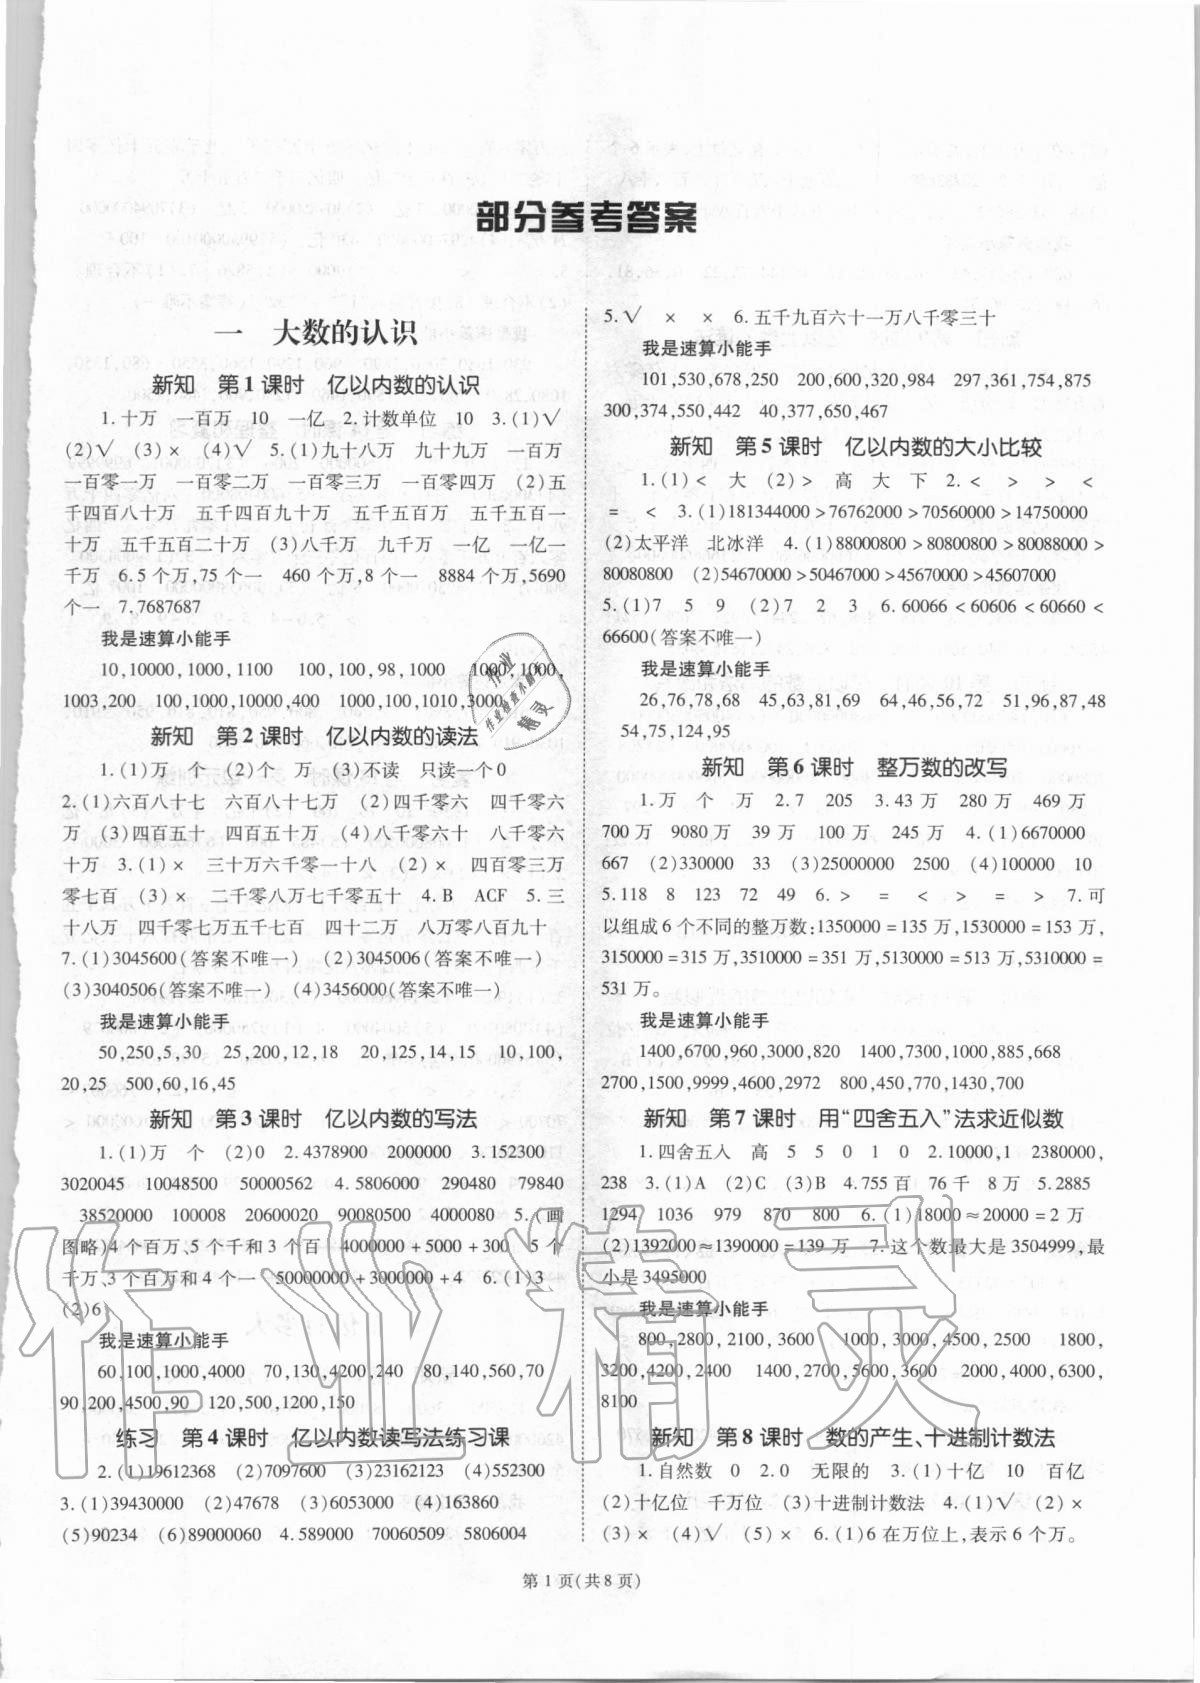 部分参考答案
一 大数的认识
新知 第1课时 亿以内数的认识
1.十万 一百万 10 一亿 2.计数单位 10 3.(1)√
(2)√ (3)× (4)√ 5.(1)九十八万 九十九万 一百万
一百零一万 一百零二万 一百零三万 一百零四万 (2)五
千四百八十万 五千四百九十万 五千五百万 五千五百一
十万 五千五百二十万 (3)八千万 九千万 一亿 一亿一
千万 6.5个万,75个一 460个万,8个一 8884个万,5690
个一 7.7687687
我是速算小能手
10,10000,1000,1100 100,100,98,1000 1000,1000,
1003,200 100,1000,10000,400 1000,100,1010,3000
新知 第2课时 亿以内数的读法
1.(1)万 个 (2)个 万 (3)不读 只读一个0
2.(1)六百八十七 六百八十七万 (2)四千零六 四千零六
万 (3)四百五十 四百五十万 (4)八千零六十 八千零六
十万 3.(1)× 三十万六千零一十八 (2)× 四百零三万
零七百 (3)× 二千零八万七千零五十 4.B ACF 5.三
十八万 四千零七万五千七百 四十二万 八万零八百九十
7.(1)3045600(答案不唯一) (2)3045006(答案不唯一)
(3)3040506(答案不唯一) (4)3456000(答案不唯一)
我是速算小能手
50,250,5,30 25,200,12,18 20,125,14,15 10,100,
20,25 500,60,16,45
新知 第3课时 亿以内数的写法
1.(1)万 个 (2)0 2.4378900 2000000 3.152300
3020045 10048500 50000562 4.5806000 290480 79840
38520000 100008 20600020 90080500 4000080 5.(画
图略)4个百万、5个千和3个百 4000000+5000+300 5个
千万、3个百万和4个一 50000000+3000000+4 6.(1)3
(2)6
我是速算小能手
60,100,1000,4000 70,130,4200,240 80,140,560,70
90,200,4500,90 120,500,1200,150
练习 第4课时 亿以内数读写法练习课
2.(1)19612368 (2)7097600 (3)23162123 (4)552300
3.(1)39430000 (2)47678 (3)6053000 (4)163860
(5)90234 (6)89000060 4.589000 70060509 5806004
5.√ × × 6.五千九百六十一万八千零三十
我是速算小能手
101,530,678,250 200,600,320,984 297,361,754,875
300,374,550,442 40,377,650,467
新知 第5课时 亿以内数的大小比较
1.(1)< 大 (2)> 高 大 下 2.< > > <
= < 3.(1)181344000>76762000>70560000>14750000
(2)太平洋 北冰洋 4.(1)88000800>80800800>80088000>
80080800 (2)54670000>50467000>45670000>45607000
5.(1)7 5 9 (2)7 2 3 6.60066<60606<60660<
66600(答案不唯一)
我是速算小能手
26,76,78,68 45,63,81,69 64,46,56,72 51,96,87,48
54,75,124,95
新知 第6课时 整万数的改写
1.万 个 万 2.7 205 3.43万 280万 469万
700万 9080万 39万 100万 245万 4.(1)6670000
667 (2)330000 33 (3)25000000 2500 (4)100000 10
5.118 8 123 72 49 6.> = < > = > 7.可
以组成6个不同的整万数:1350000=135万,1530000=153万,
3150000=315万,3510000=351万,5130000=513万,5310000=
531万。
我是速算小能手
1400,6700,960,3000,820 1400,7300,1000,885,668
2700,1500,9999,4600,2972 800,450,770,1430,700
新知 第7课时 用“四舍五入”法求近似数
1.四舍五入 高 5 5 0 1 0 2.10000,1 2380000,
238 3.(1)A (2)C (3)B 4.755百 76千 8万 5.2885
1294 1036 979 870 800 6.(1)18000≈20000=2万
(2)1392000≈1390000=139万 7.这个数最大是3504999,最
小是3495000
我是速算小能手
800,2800,2100,3600 1000,3000,4500,2500 1800,
3200,4200,2400 1400,2700,5600,3600 2000,4000,6300,
8100
新知 第8课时 数的产生、十进制计数法
1.自然数 0 2.0 无限的 3.(1)十亿 10 百亿
(2)十亿位 千万位 (3)十进制计数法 4.(1)√ (2)×
(3)× (4)√ (5)× 6.(1)6在万位上,表示6个万。
第1页(共8页)
作业精灵